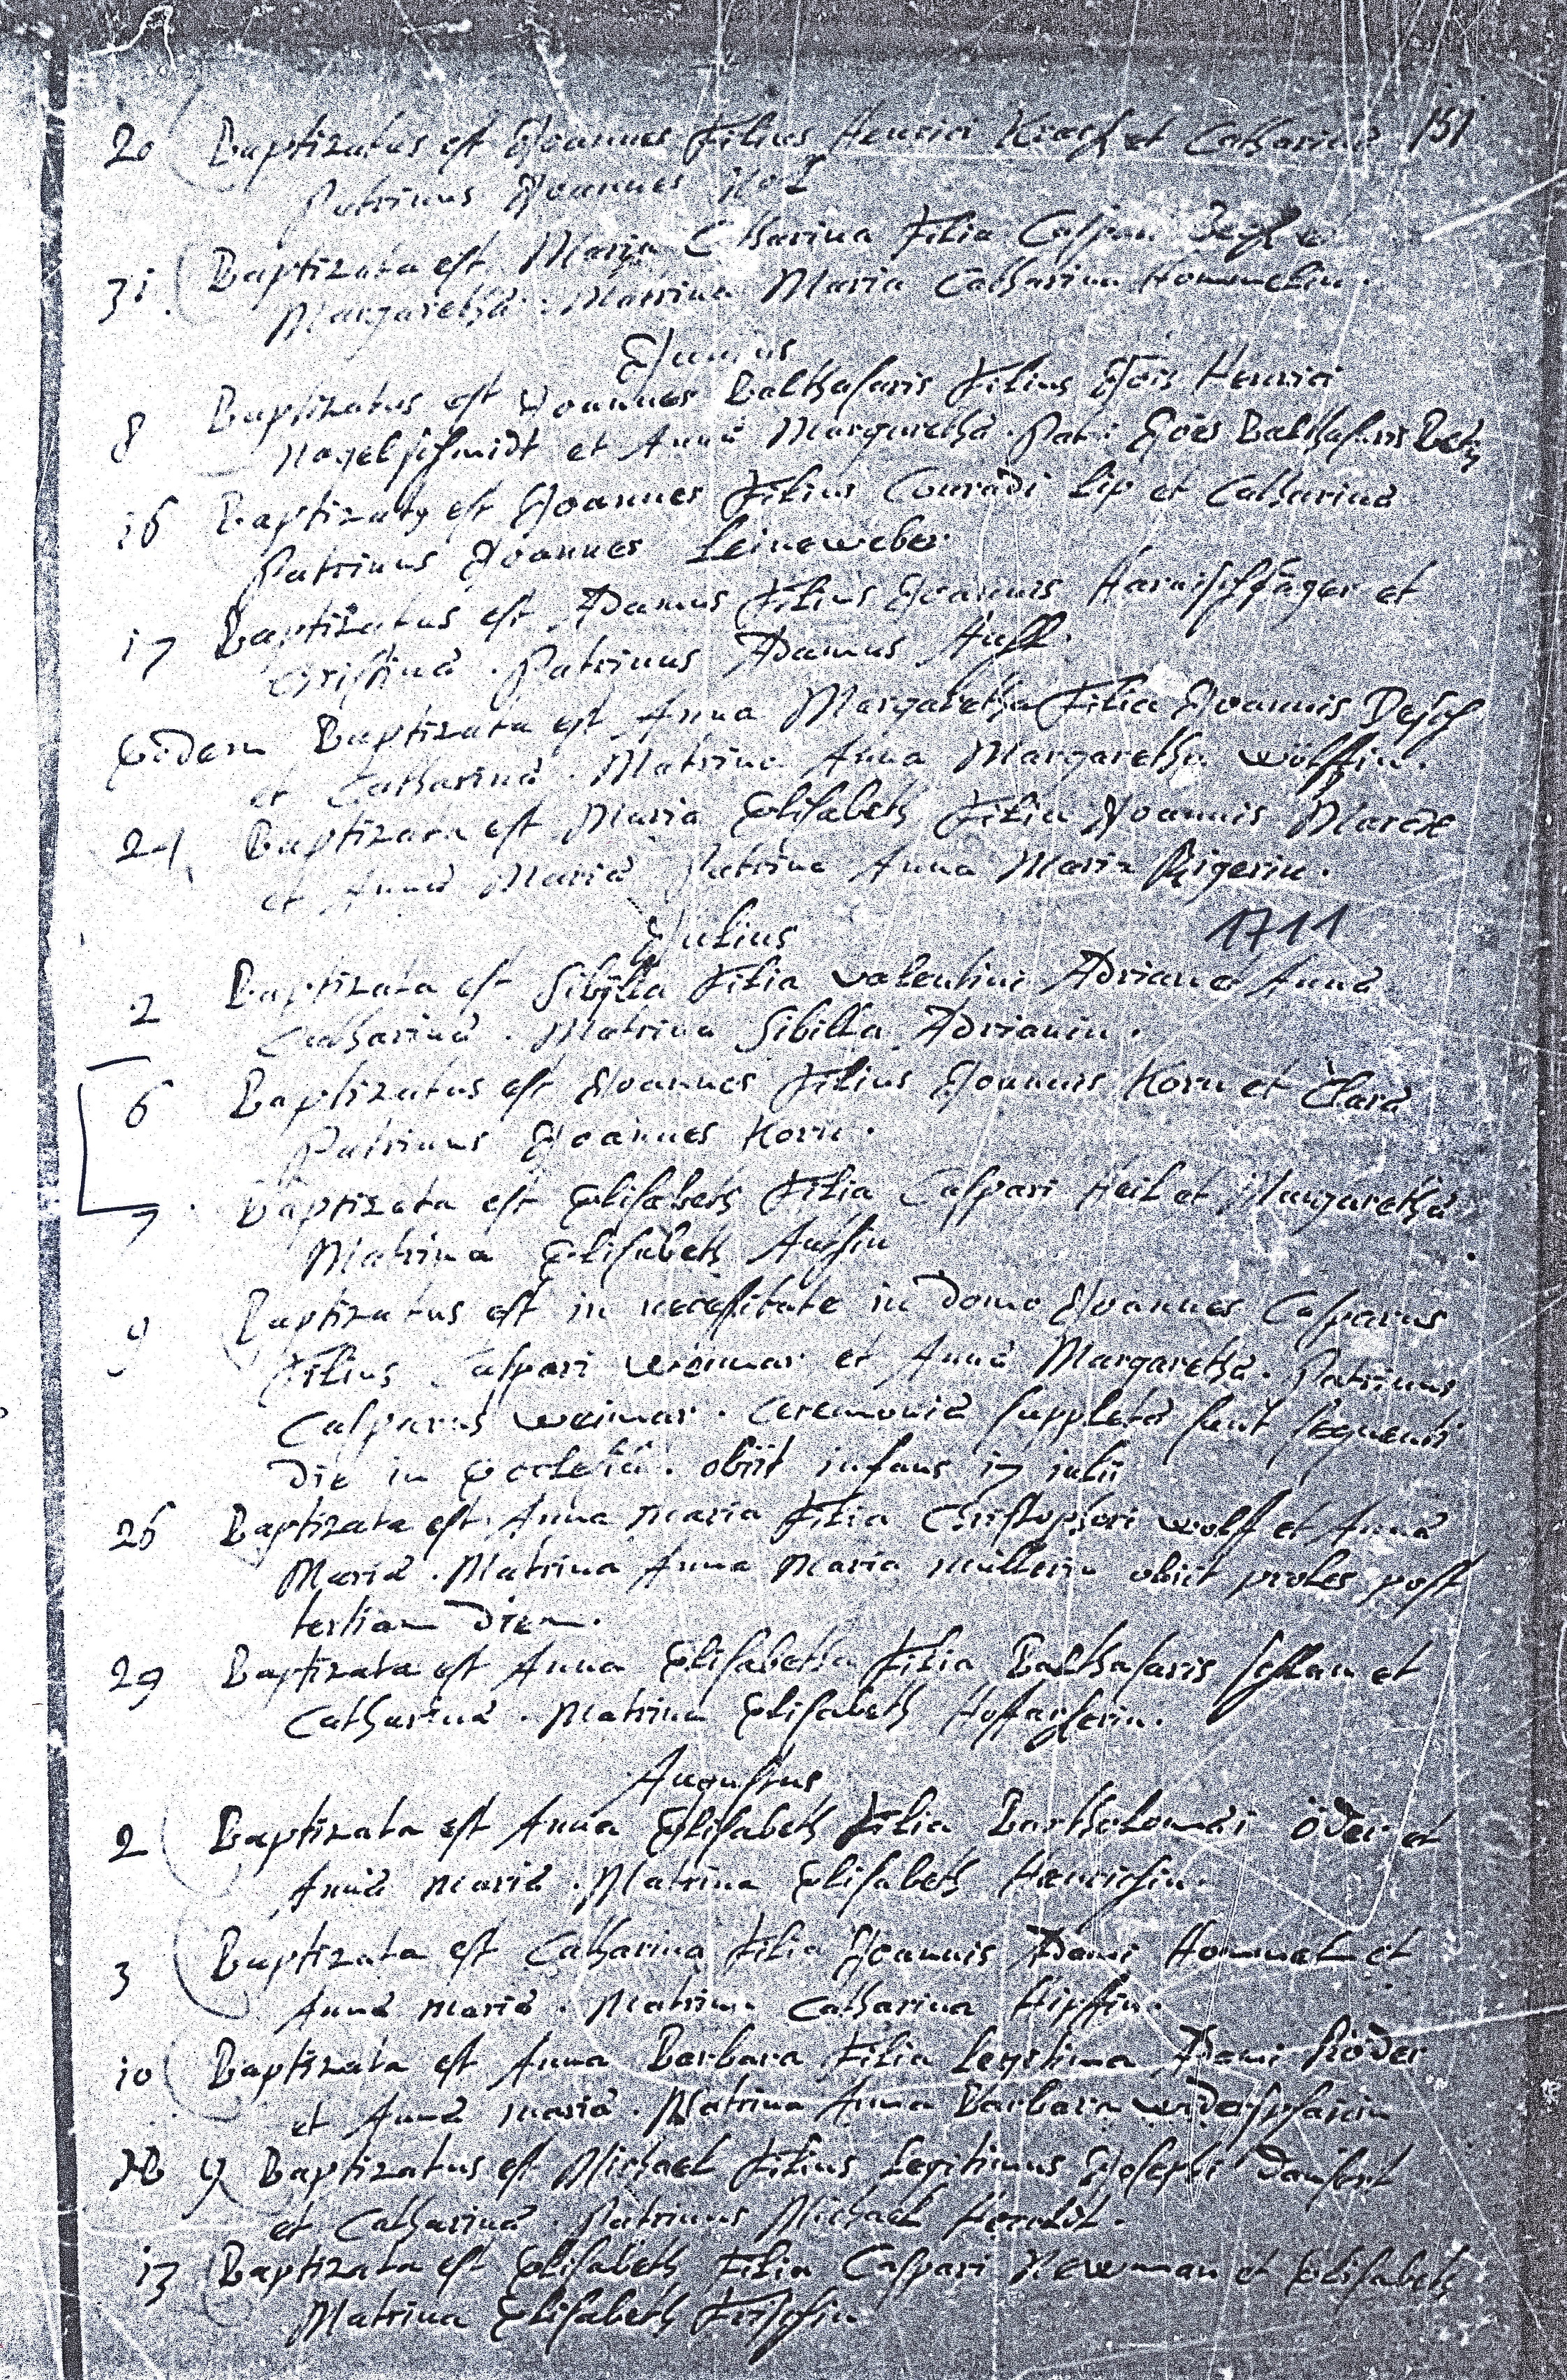 151
20 Baptizatus est Joannes Filius Henrici et Catharinæ
Patrinus Joannes
31. Baptizata est Maria Catharina Filia Caspari
Margaretha. Matrina Maria Catharina Hommelin.
Junius
8 Baptizatus est Joannes Balthasaris Filius Jois Henrici
Nagelschmidt et Annæ Margaretha. Patr: Joes Balthasaris
16 Baptizatq est Joannes Filius Conradi Lip et Catharinæ
Patrinus Joannes Leineweber
17 Baptizatus est Adamus Filius Joannis Harnischfäger et
Christinæ. Patrinus Adamus
Eodem Baptizata est Anna Margaretha Filia Joannis Desch
et Catharinæ. Matrina Anna Margaretha Wölffin.
24 Baptizata est Maria Elisabeth Filia Joannis
et Annæ Mariæ Matrina Anna Maria
Julius 1711
2 Baptizata est Sibilla Filia Valentini Adrian et Annæ
Catharinæ. Matrina Sibilla Adrianin.
6 Baptizatus est Joannes Filius Joannis Korn et Claræ
Patrinus Joannes Korn.
7. Baptizata est Elisabeth Filia Caspari Heil et Margarethæ
Matrina Elisabeth
9 Baptizatus est in necessitate in domo Joannes Casparus
Filius Caspari Weimar et Annæ Margarethæ. Patrinus
Casparus Weimar. Ceremoniæ suppletæ sunt sequenti
die in Ecclesiâ. obiit infans 17 iulii
26 Baptizata est Anna Maria Filia Christophori Wolff et Annæ
Mariæ. Matrina Anna Maria Müllerin obiit proles post
tertiam diem.
29 Baptizata est Anna Elisabetha Filia Balthasaris et
Catharinæ. Matrina Elisabeth
Augustus
2 Baptizata est Anna Elisabeth Filia Bartholomæi öder et
Annæ Mariæ. Matrina Elisabeth Henrichin.
3 Baptizata est Catharina Filia Joannis Adami Hommel et
Annæ Mariæ. Matrina Catharina
10 Baptizata est Anna Barbara Filia Legitima Adami Röder
et Annæ Mariæ. Matrina Anna Barbara
9 Baptizatus est Michael Filius Legitimus Josephi
et Catharinæ. Patrinus Michael
13 Baptizata est Elisabeth Filia Caspari Newman et Elisabeth
Matrina Elisabeth